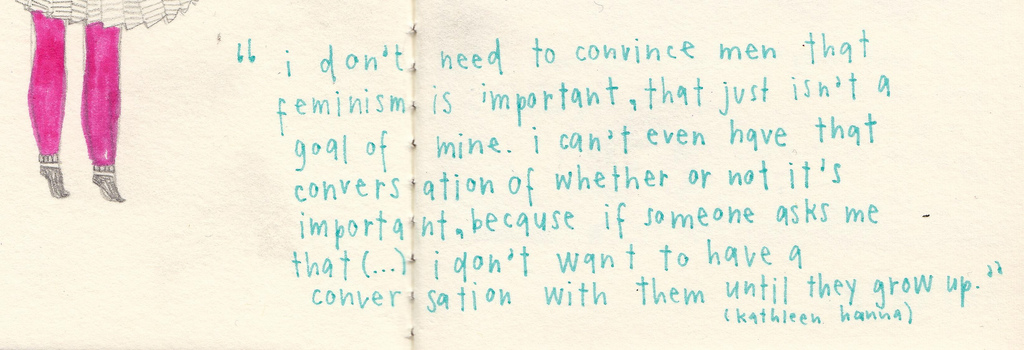 “ i don't need to convince men that
feminism is important, that just isn't a
goal of mine. i can't even have that
conversation of whether or not it's
important, because if someone asks me
that (...) i don't want to have a
conversation with them until they grow up.”
(kathleen hanna)